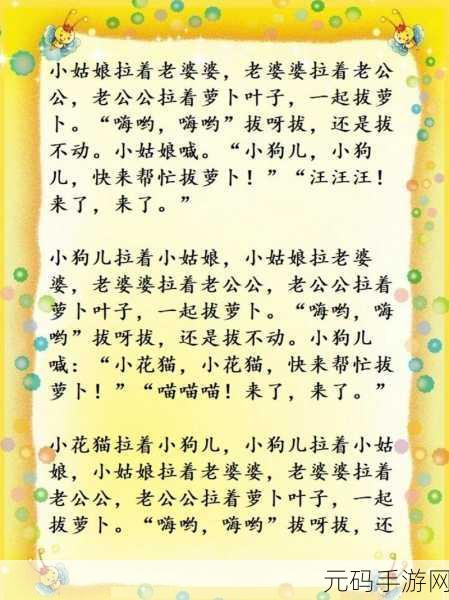 小姑娘拉着老婆婆，老婆婆拉着老公
公，老公公拉着萝卜叶子，一起拔萝
卜。“嗨哟，嗨哟”拔呀拔，还是拔
不动。小姑娘喊。“小狗儿，小狗
儿，快来帮忙拔萝卜！”“汪汪汪！
来了，来了。”
小狗儿拉着小姑娘，小姑娘拉老婆
婆，老婆婆拉着老公公，老公公拉着
萝卜叶子，一起拔萝卜。“嗨哟，嗨
哟”拔呀拔，还是拔不动。小狗儿
喊：“小花猫，小花猫，快来帮忙拔
萝卜！”“喵喵喵！来了，来了。”
小花猫拉着小狗儿，小狗儿拉着小姑
娘，小姑娘拉着老婆婆，老婆婆拉着
老公公，老公公拉着萝卜叶子，一起
拔萝卜。“嗨哟，嗨哟”拔呀拔，还
元码手游网